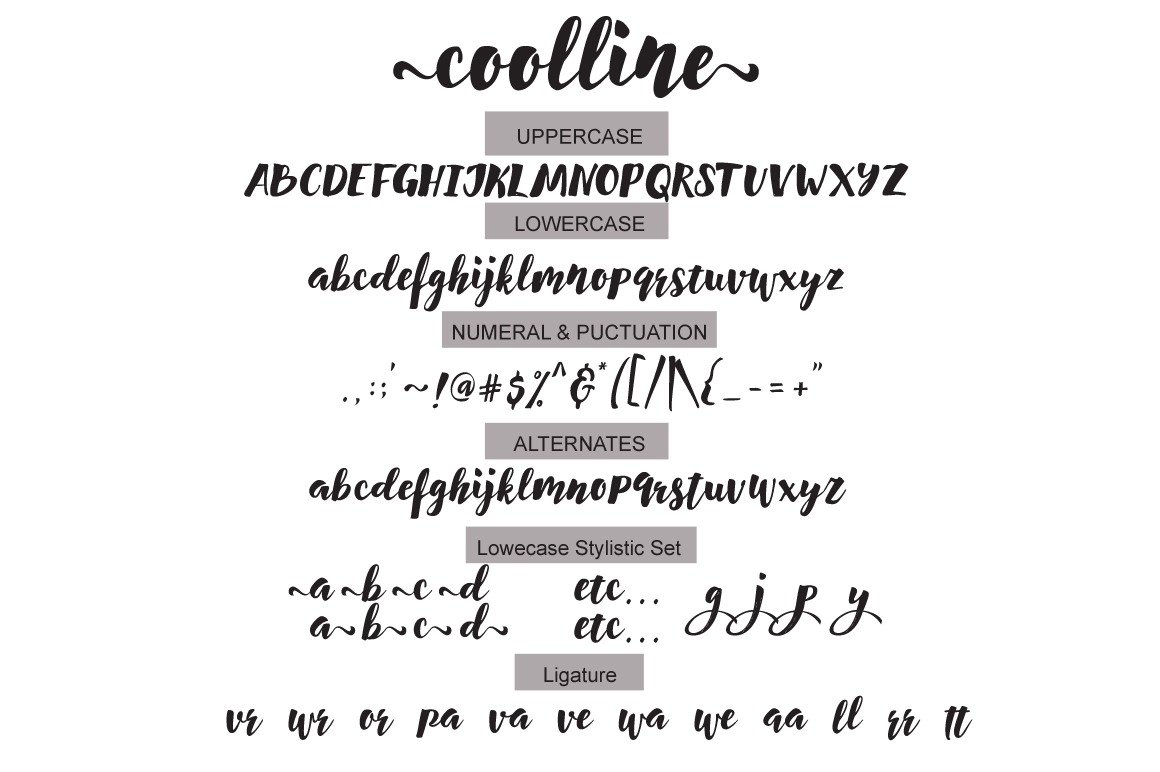 ~coolline~
UPPERCASE
ABCDEFGHIJKLMNOPQRSTUVWXYZ
LOWERCASE
abcdefghijklmnopqrstuvwxyz
NUMERAL & PUCTUATION
.,:;'~!@#$%^&*([/|\{_-=+"
ALTERNATES
abcdefghijklmnopqrstuvwxyz
Lowecase Stylistic Set
~a~b~c~d etc...
a~b~c~d~ etc...
g j p y
Ligature
vr wr or pa va ve wa we aa ll rr tt